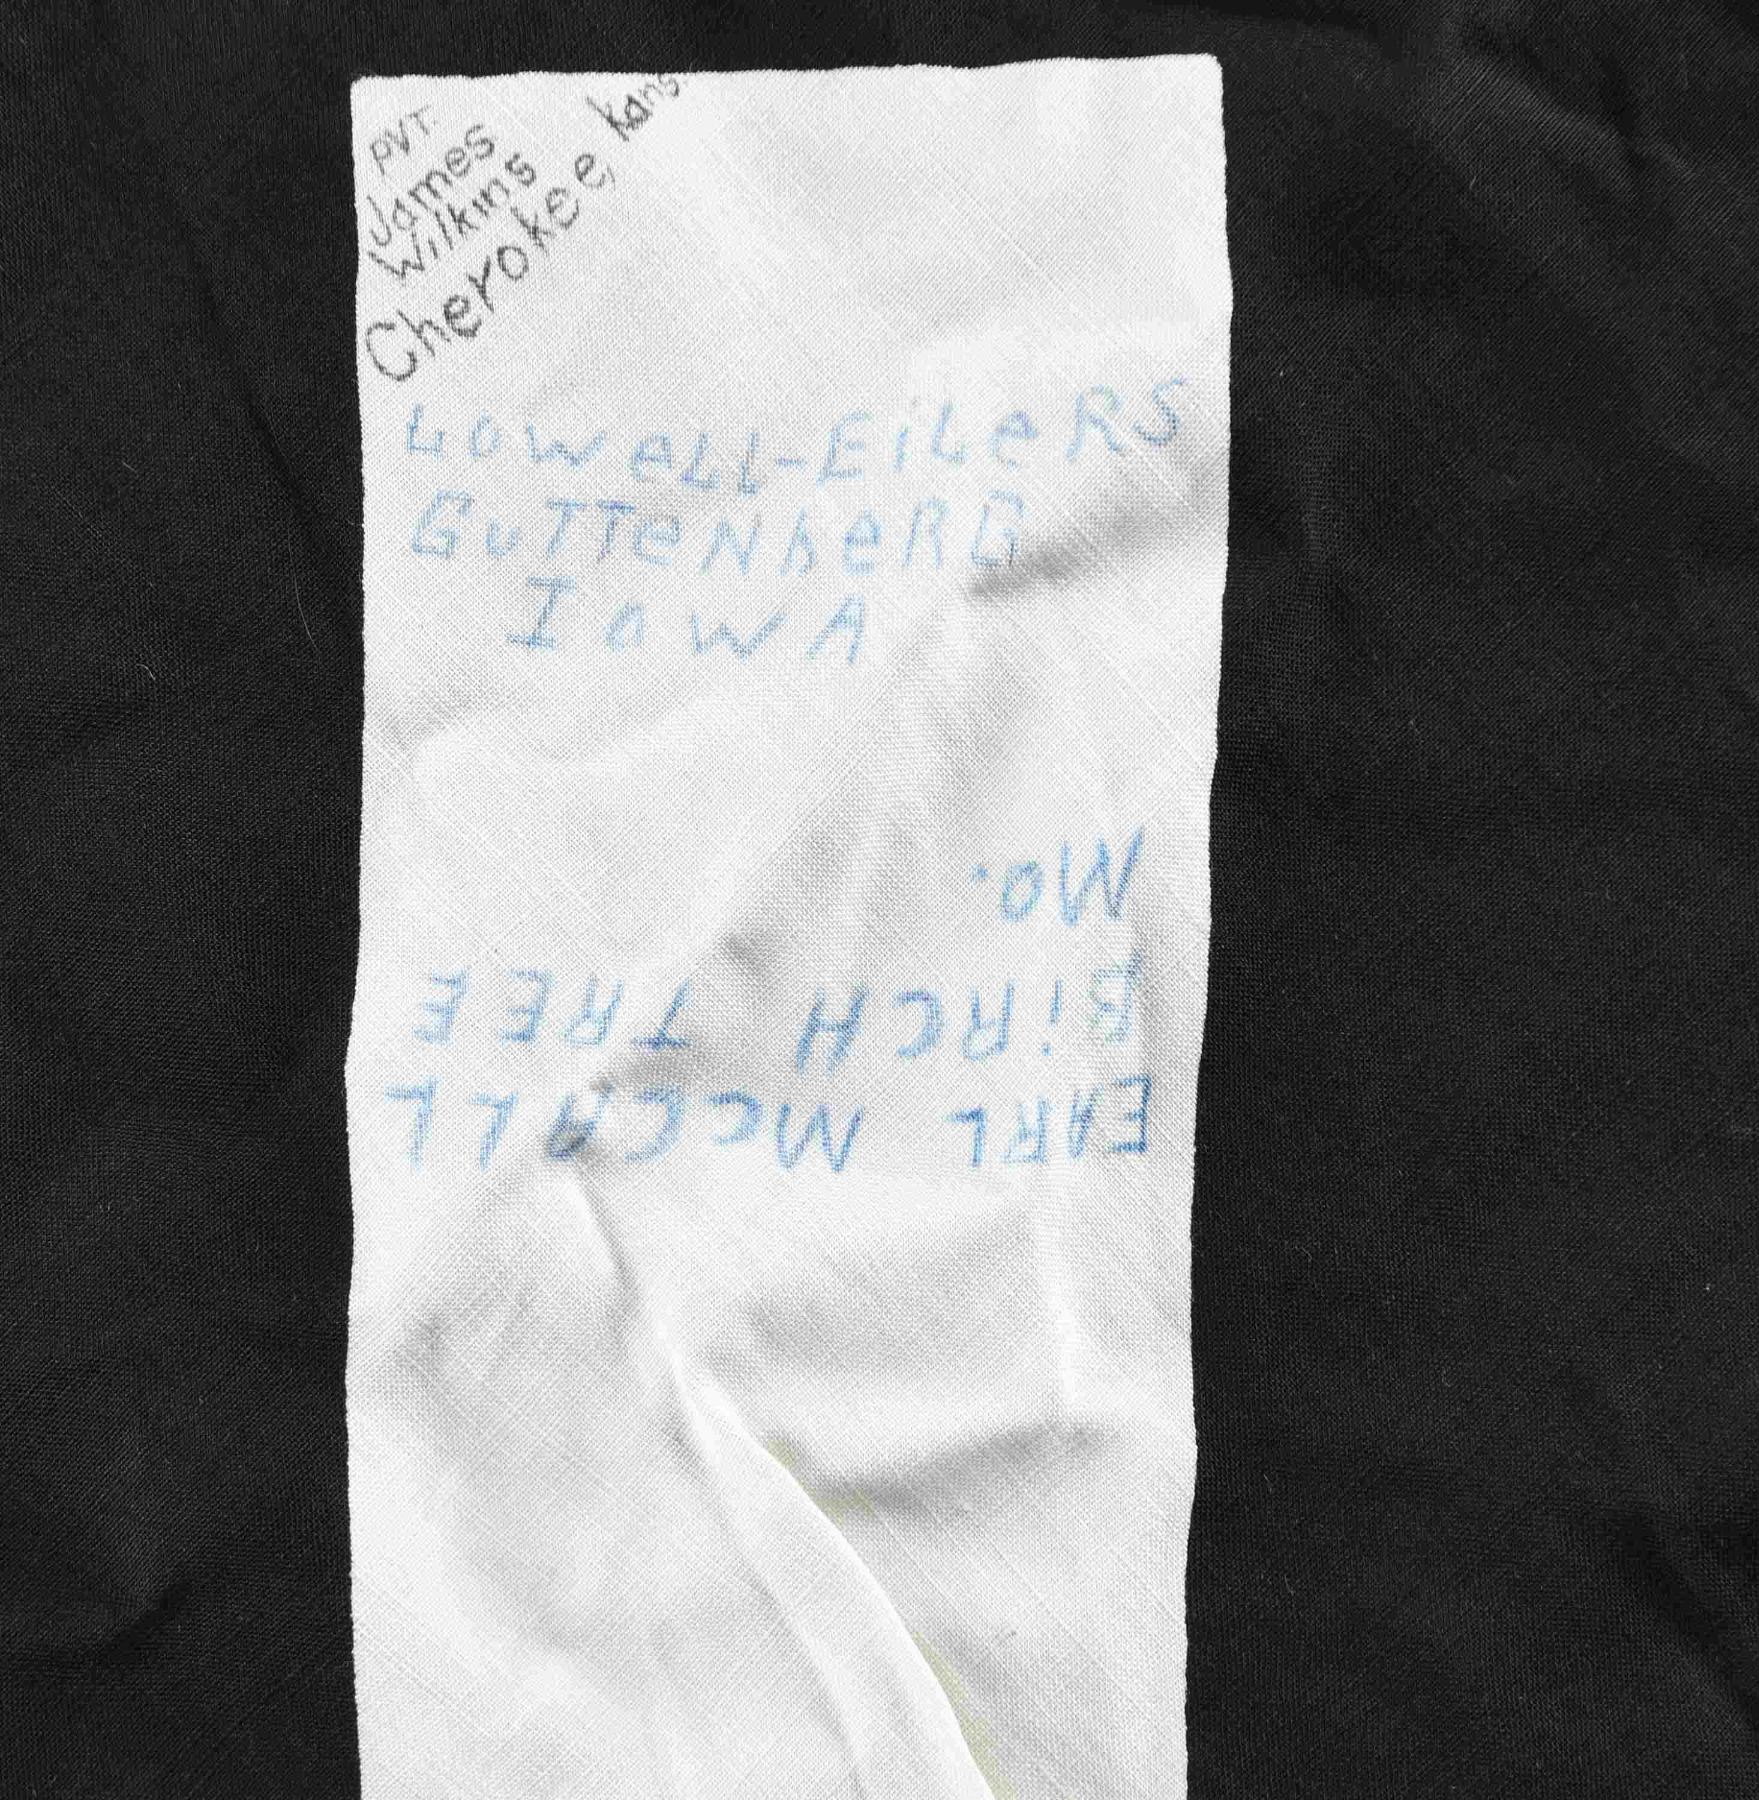 PVT.
James
Wilkins
Cherokee, Kans.
LOWeLL-EiLeRS
GuTTeNbeRG
IoWA
EARL McCALL
BiRCH TREE
Mo.